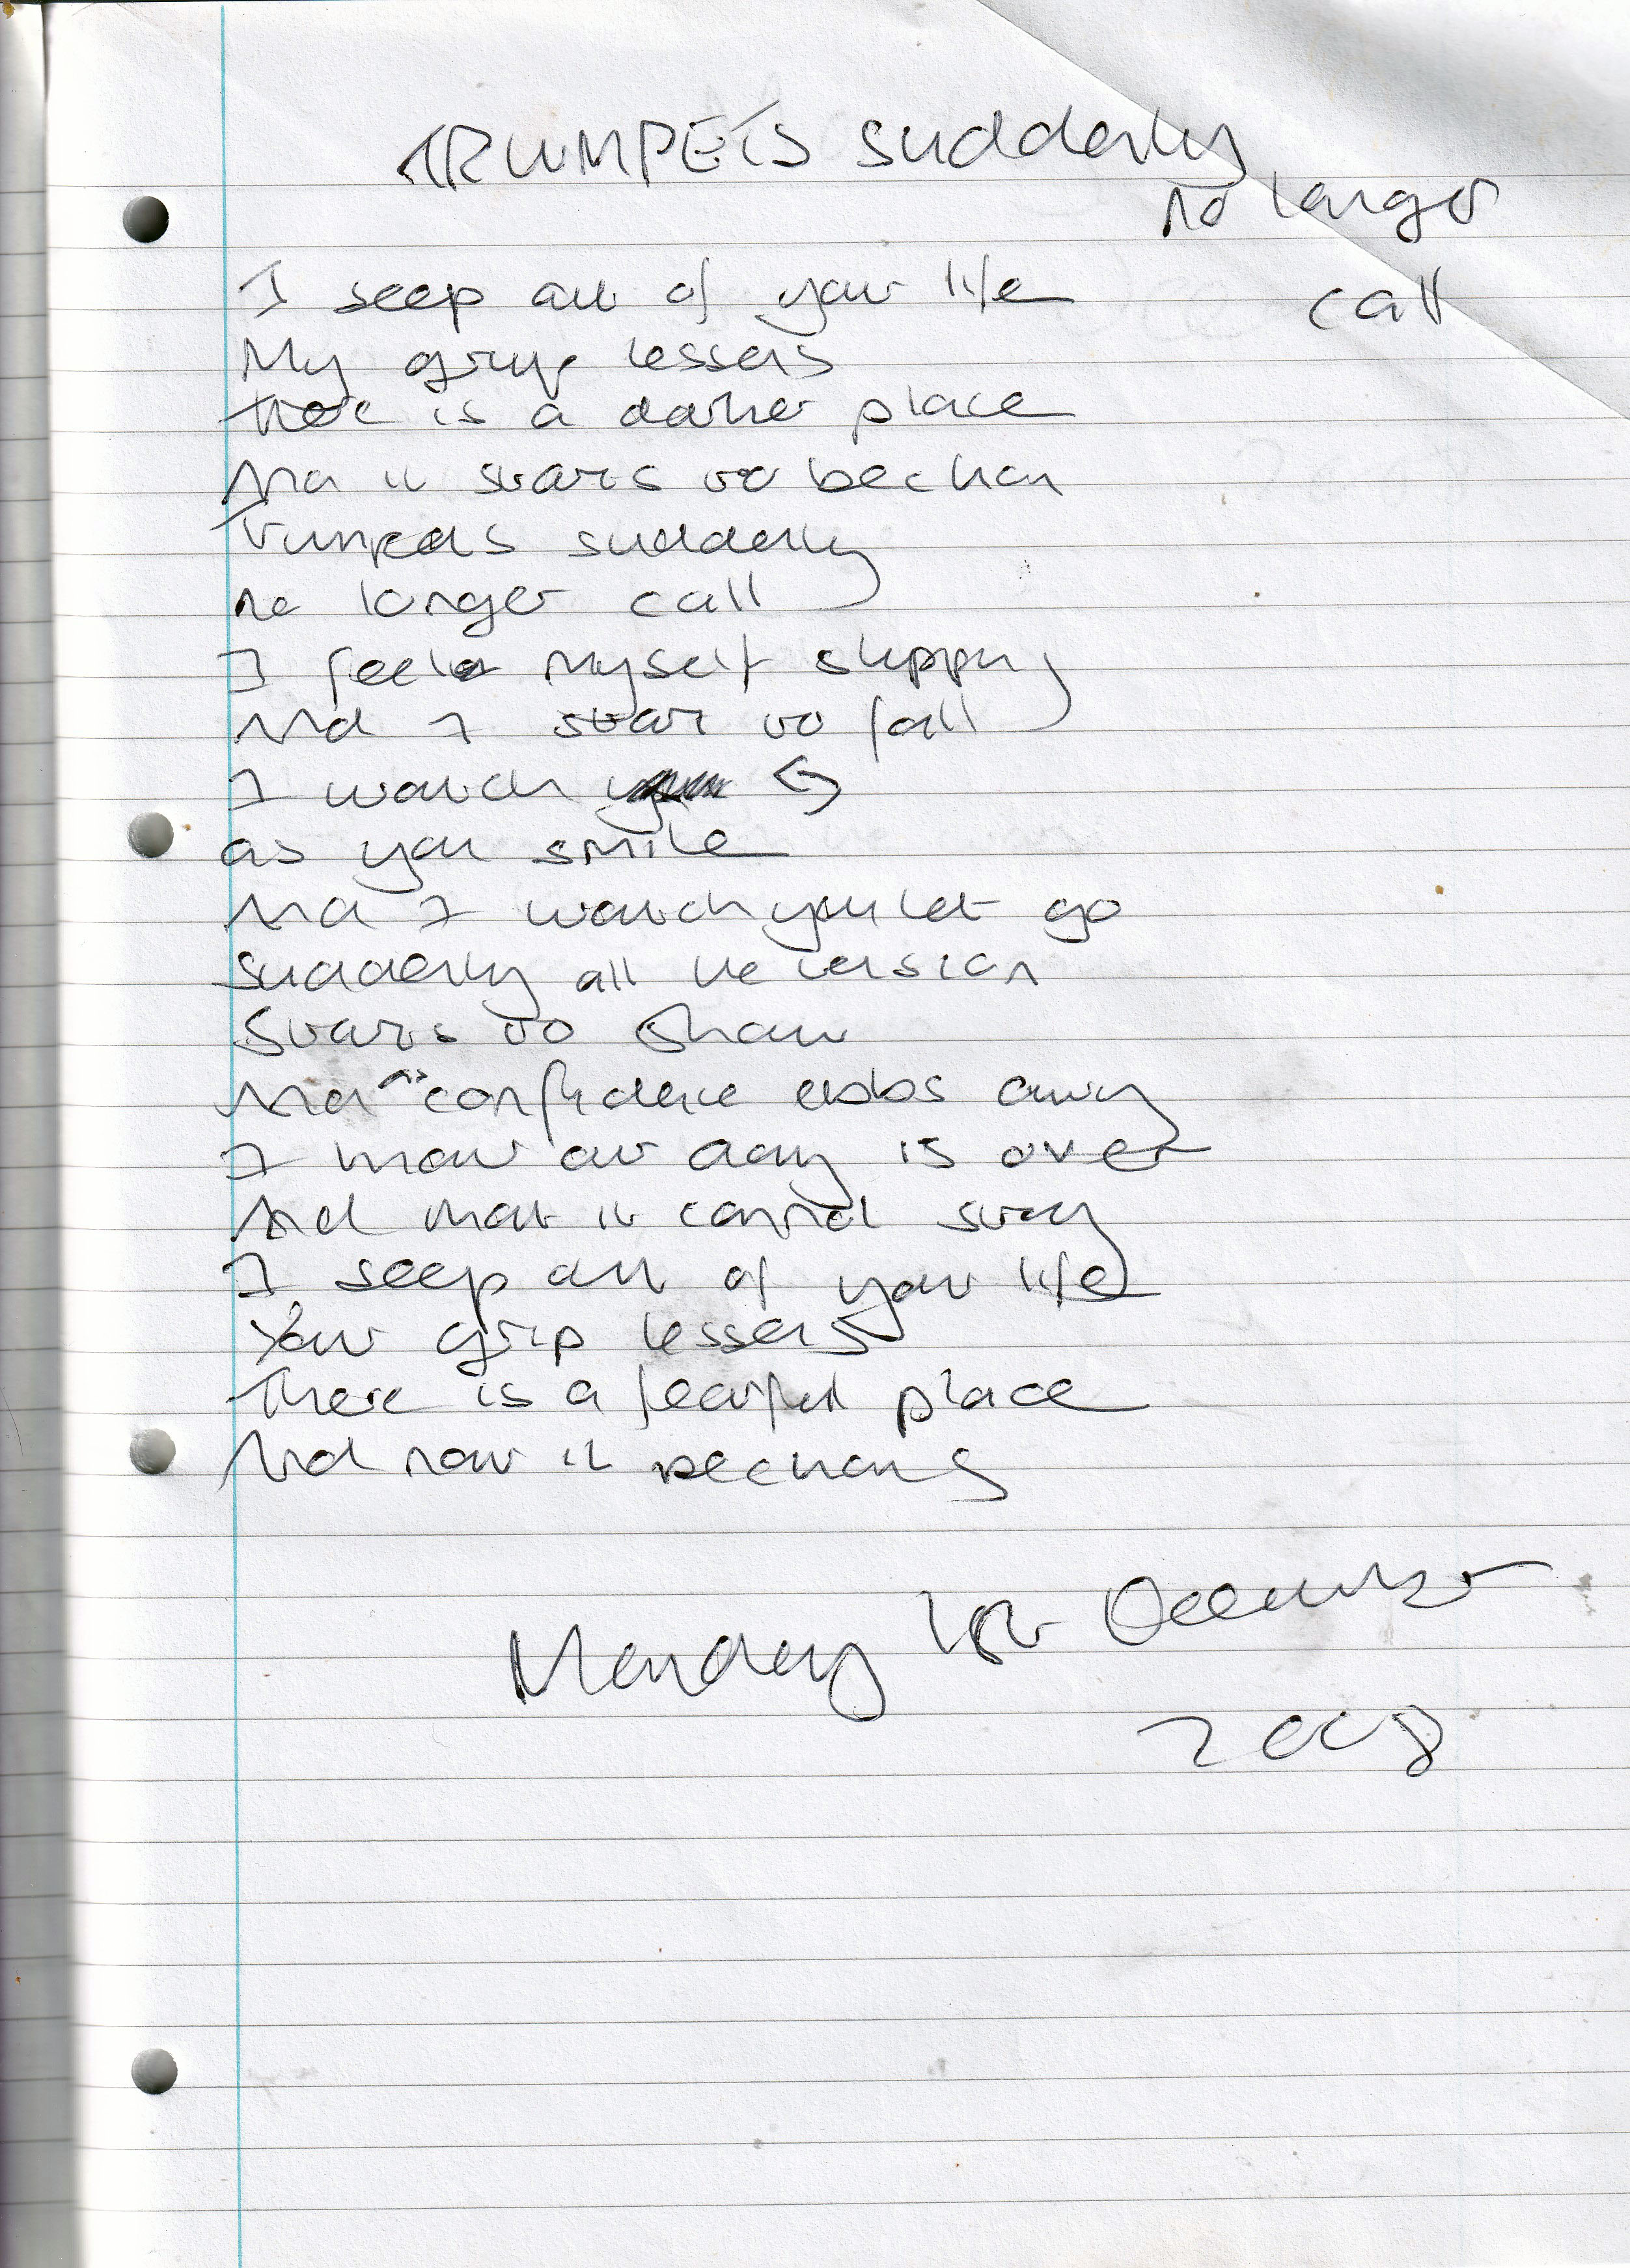 TRUMPETS suddenly
no longer
call
I seep out of your life
My grip lessens
There is a darker place
And it starts to beckon
Trumpets suddenly
no longer call
I feel myself slipping
And I start to fall
I watch
as you smile
And I watch you let go
Suddenly all the tension
Starts to show
And confidence ebbs away
I know our day is over
And that it cannot stay
I seep out of your life
Your grip lessens
There is a fearful place
And now it beckons
Monday 1st December
2008